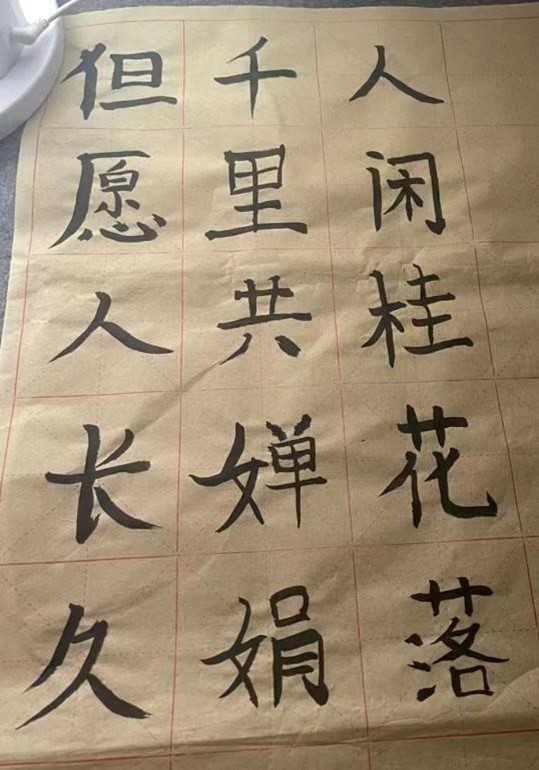 但愿人长久
千里共婵娟
人闲桂花落